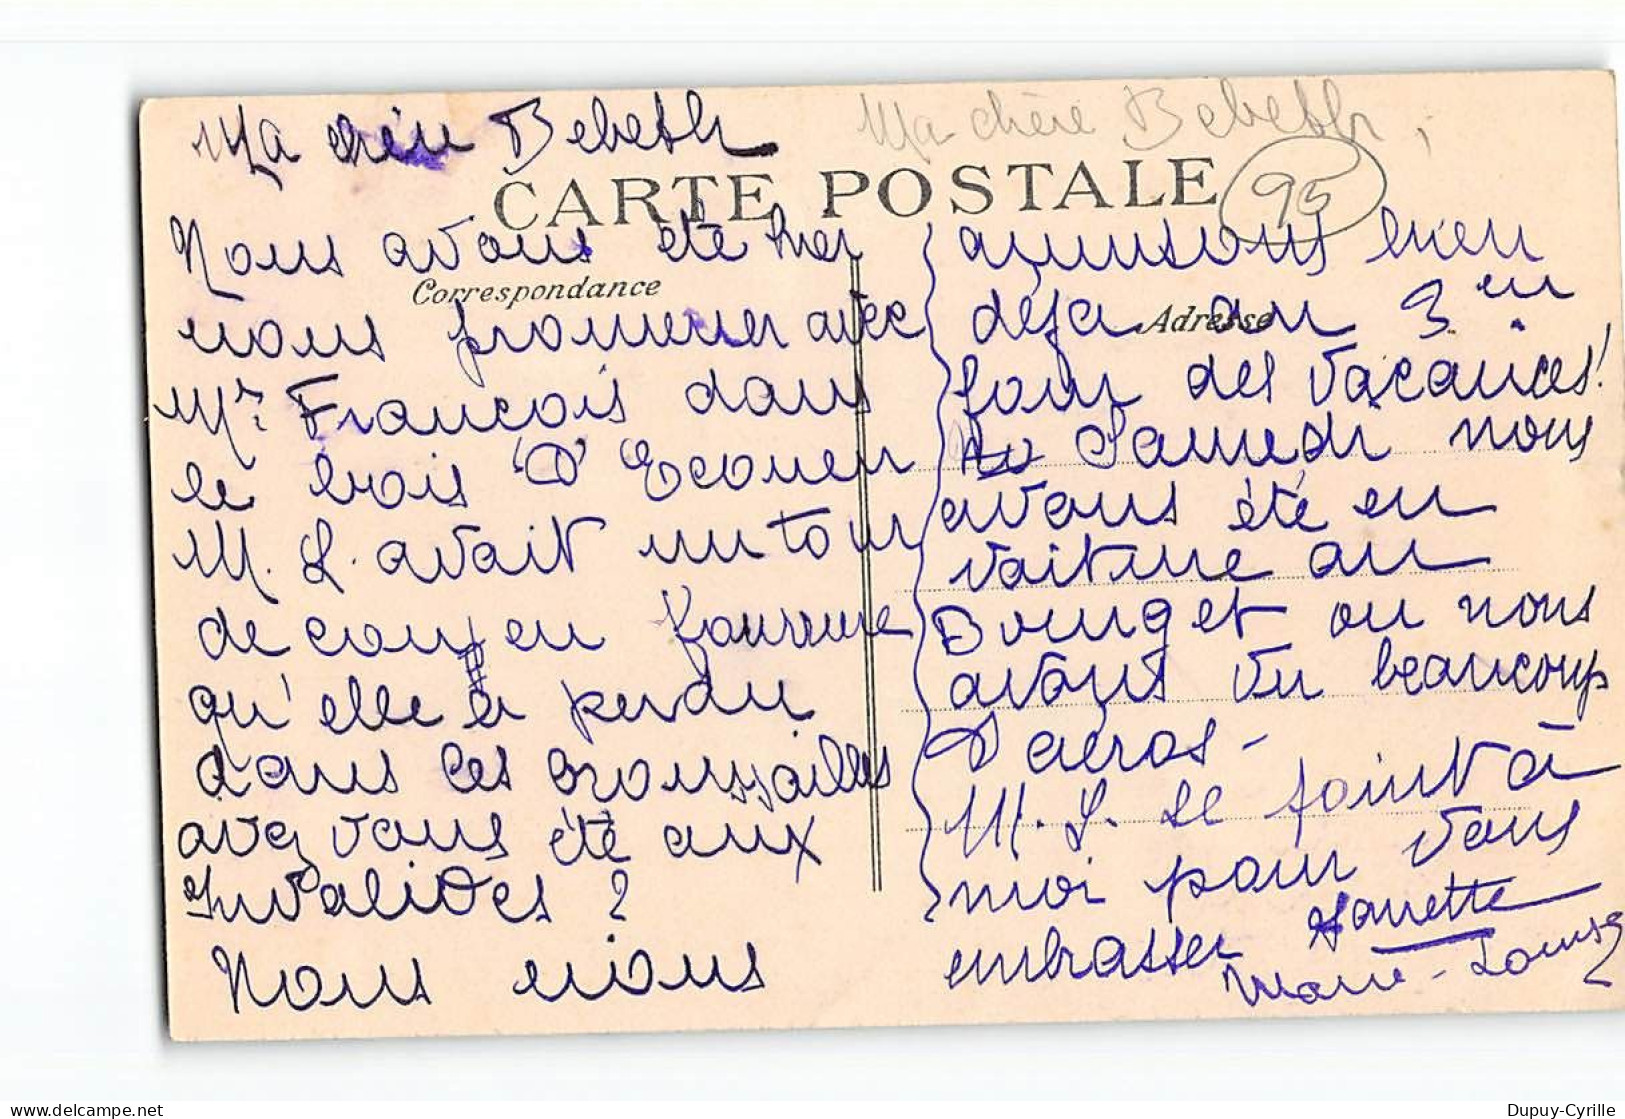 Ma chère Bebeth
Ma chère Bebeth,
CARTE POSTALE
95
Correspondance
Adresse
Nous avons été hier
nous promener avec
Mr. François dans
le bois D'Ecouen
M. L. avait un tour
de cou en fourrure
qu'elle a perdu
dans les broussailles
avez vous été aux
Invalides ?
Nous nous
amusons bien
déja au 3 em
jour des vacances!
Samedi nous
avons été en
voiture au
Bourget ou nous
avons vu beaucoup
D'aéros -
M. L. se joint à
moi pour vous
embrasser
Marie-Louise
Dupuy-Cyrille